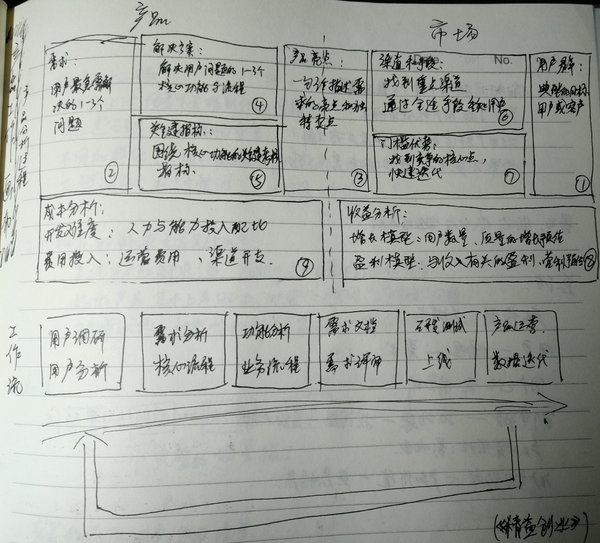 产品
市场
No.
需求:
用户最急需解
决的1-3个
问题
②
解决方案:
解决用户问题的1-3个
核心功能与流程
④
关键指标:
围绕核心功能的关键考核
指标
⑤
产品亮点:
一句话描述需
求的亮点和独
特卖点
③
渠道和手段
找到垂直渠道
通过合适手段
⑥
门槛优势:
找到竞争的核心点,
快速迭代
⑦
用户群:
典型的目标
用户或客户
①
成本分析:
开发难度: 人力与能力投入配比
费用投入: 运营费用、渠道开支.
⑨
收益分析:
增长模型: 用户数量、
盈利模型: 与收入有关的盈利、
⑧
工作流
用户调研
用户分析
需求分析
核心流程
功能分析
业务流程
需求文档
需求评审
研发测试
上线
产品运营
数据迭代
精益创业